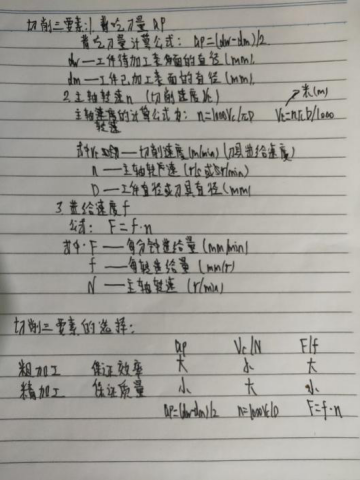 切削三要素: 1. 背吃刀量 ap
背吃刀量计算公式: ap=(dw-dm)/2
dw — 工件待加工表面的直径 (mm)
dm — 工件已加工表面的直径 (mm)
2. 主轴转速 n (切削速度 Vc) 米(m)
主轴转速的计算公式为: n=1000Vc/πD Vc=nπD/1000
式中 Vc — 切削速度 (m/min)
n — 主轴转速 (r/s 或 r/min)
D — 工件直径或刀具直径 (mm)
3. 进给速度 f
公式: F=f·n
式中: F — 每分钟进给量 (mm/min)
f — 每转进给量 (mm/r)
N — 主轴转速 (r/min)
切削三要素的选择:
ap Vc/N F/f
粗加工 保证效率 大 小 大
精加工 保证质量 小 大 小
ap=(dw-dm)/2 n=1000Vc/D F=f·n